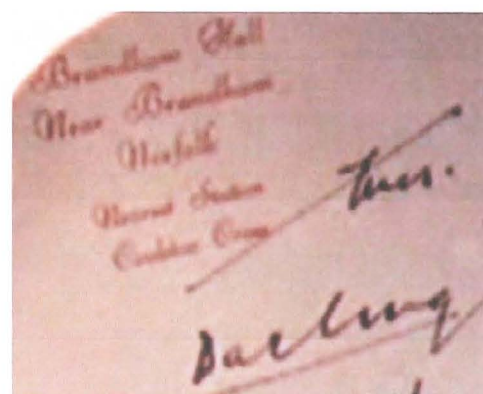 Brandham Hall
Near Brandham
Norfolk
Nearest Station
Tues.
Darling